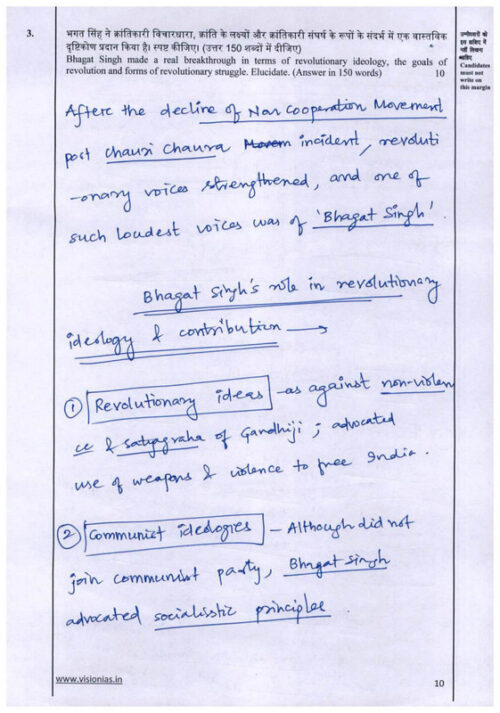 3.
भगत सिंह ने क्रांतिकारी विचारधारा, क्रांति के लक्ष्यों और क्रांतिकारी संघर्ष के रूपों के संदर्भ में एक वास्तविक
दृष्टिकोण प्रदान किया है। स्पष्ट कीजिए। (उत्तर 150 शब्दों में दीजिए)
Bhagat Singh made a real breakthrough in terms of revolutionary ideology, the goals of
revolution and forms of revolutionary struggle. Elucidate. (Answer in 150 words) 10
उम्मीदवारों को
इस हाशिए में
नहीं लिखना
चाहिए
Candidates
must not
write on
this margin
After the decline of Non Cooperation Movement
post Chauri Chaura incident, revoluti
-onary voices strengthened, and one of
such loudest voices was of 'Bhagat Singh'.
Bhagat Singh's role in revolutionary
ideology & contribution →
① Revolutionary ideas - as against non-violen
ce & satyagraha of Gandhiji; advocated
use of weapons & violence to free India.
② Communist ideologies - Although did not
join communist party, Bhagat Singh
advocated socialistic principles.
www.visionias.in
10